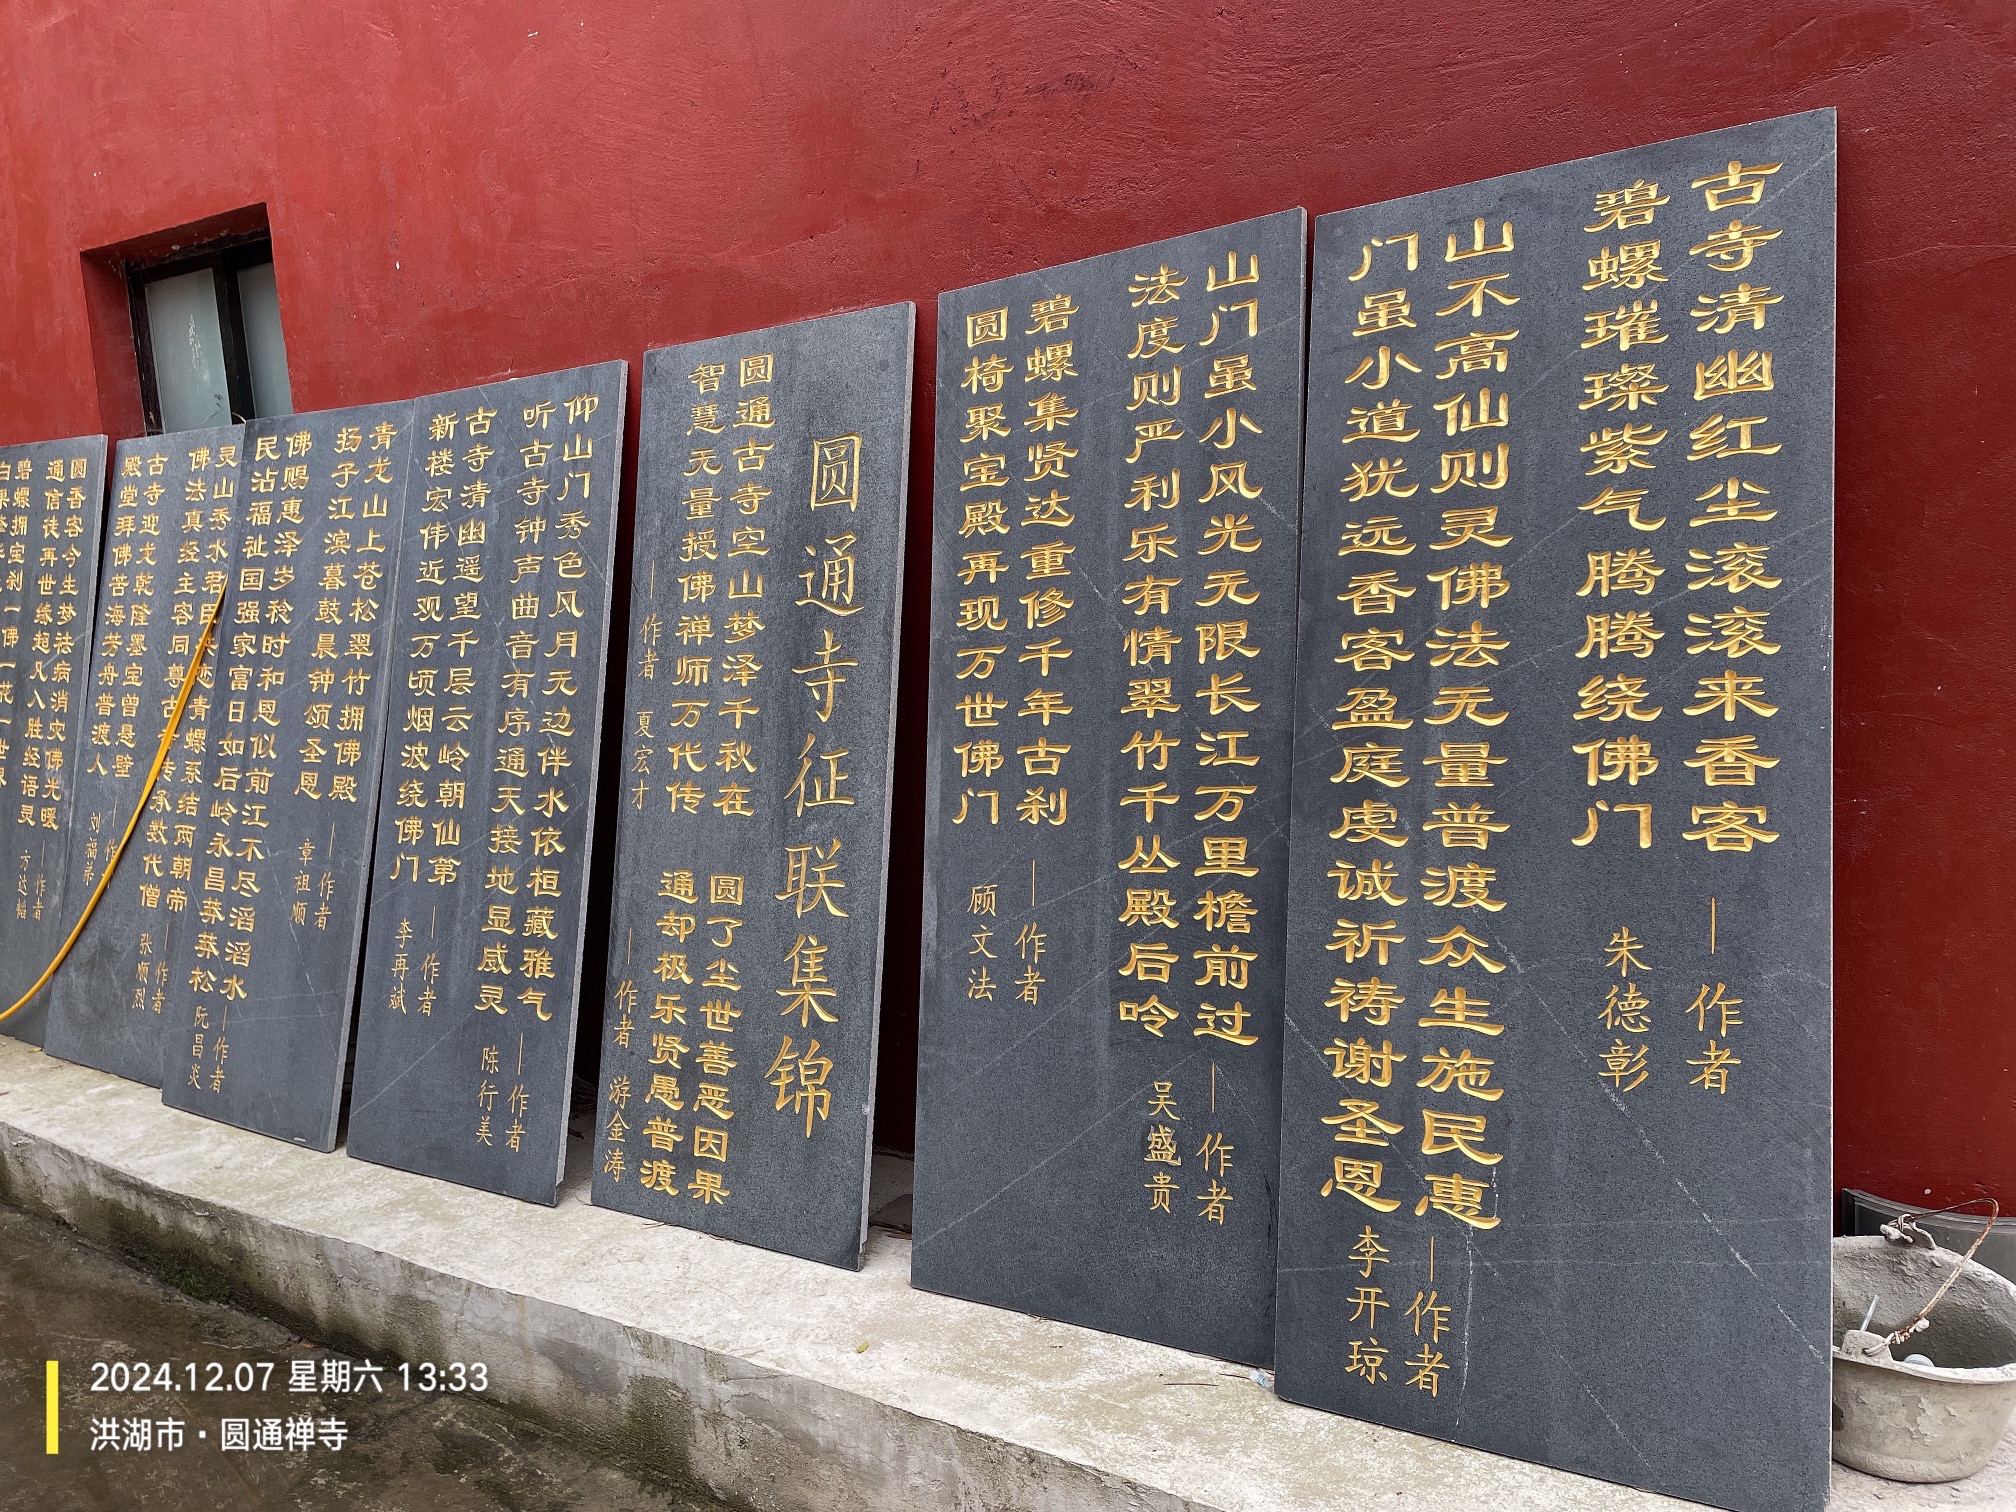 古寺清幽红尘滚滚来香客
碧螺璀璨紫气腾腾绕佛门
—作者
朱德彰
山不高仙则灵佛法无量普渡众生施民惠
门虽小道犹远香客盈庭虔诚祈祷谢圣恩
—作者
李开琼
山门虽小风光无限长江万里檐前过
法度则严利乐有情翠竹千丛殿后吟
—作者
吴盛贵
碧螺集贤达重修千年古刹
圆椅聚宝殿再现万世佛门
—作者
顾文法
圆通寺征联集锦
圆通古寺空山梦泽千秋在
智慧无量授佛禅师万代传
—作者 夏宏才
圆了尘世善恶因果
通却极乐贤愚普渡
—作者 游金涛
仰山门秀色风月无边伴水依桓藏雅气
听古寺钟声曲音有序通天接地显威灵
—作者
陈行美
古寺清幽遥望千层云岭朝仙第
新楼宏伟近观万顷烟波绕佛门
—作者
李再斌
青龙山上苍松翠竹拥佛殿
扬子江滨暮鼓晨钟颂圣恩
—作者
章祖顺
佛赐惠泽岁稔时和恩似前江不尽滔滔水
民沾福祉国强家富日如后岭永昌莽莽松
—作者
阮昌炎
灵山秀水君臣 青螺系结两朝帝
佛法真经主客同尊古 传承数代僧
—作者
张顺烈
古寺迎龙乾隆墨宝曾是壁
殿堂拜佛苦海芳舟普渡人
—作
刘福弟
圆香客今生梦祛病消灾佛光暖
通信徒再世缘超凡入胜经语灵
—作者
方达
碧螺拥宝刹一佛一花一世界
白果
2024.12.07 星期六 13:33
洪湖市·圆通禅寺